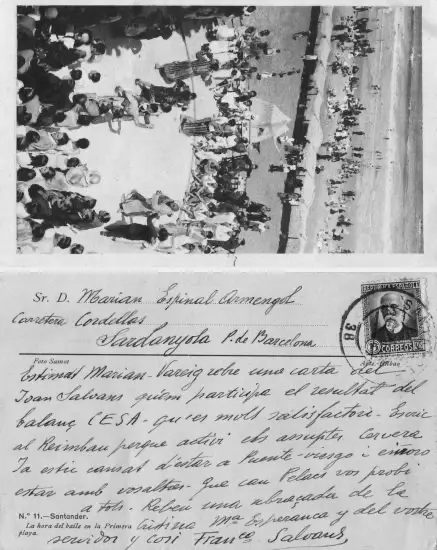 Sr. D. Marian Espinal Armengol
Carretera Cordellas
Sardanyola P. de Barcelona
Foto Samot
REPUBLICA ESPAÑOLA
CORREOS
Estimat Marian - Vareig rebre una carta del
Joan Salvans quem participa el resultat del
balanç CESA - qu'es molt satisfactori - Escric
al Reimbau perque activi els assuptes Corvera
Ja estic cansat d'estar a Puente-viesgo i
estar amb vosaltres. Que can Pelaes vos probi
a tots. Rebeu una abraçada de la
Cristina Mª Esperança y del vostre
servidor y cosi Francº Salvans
N.º 11.—Santander.
La hora del baile en la Primera
playa.